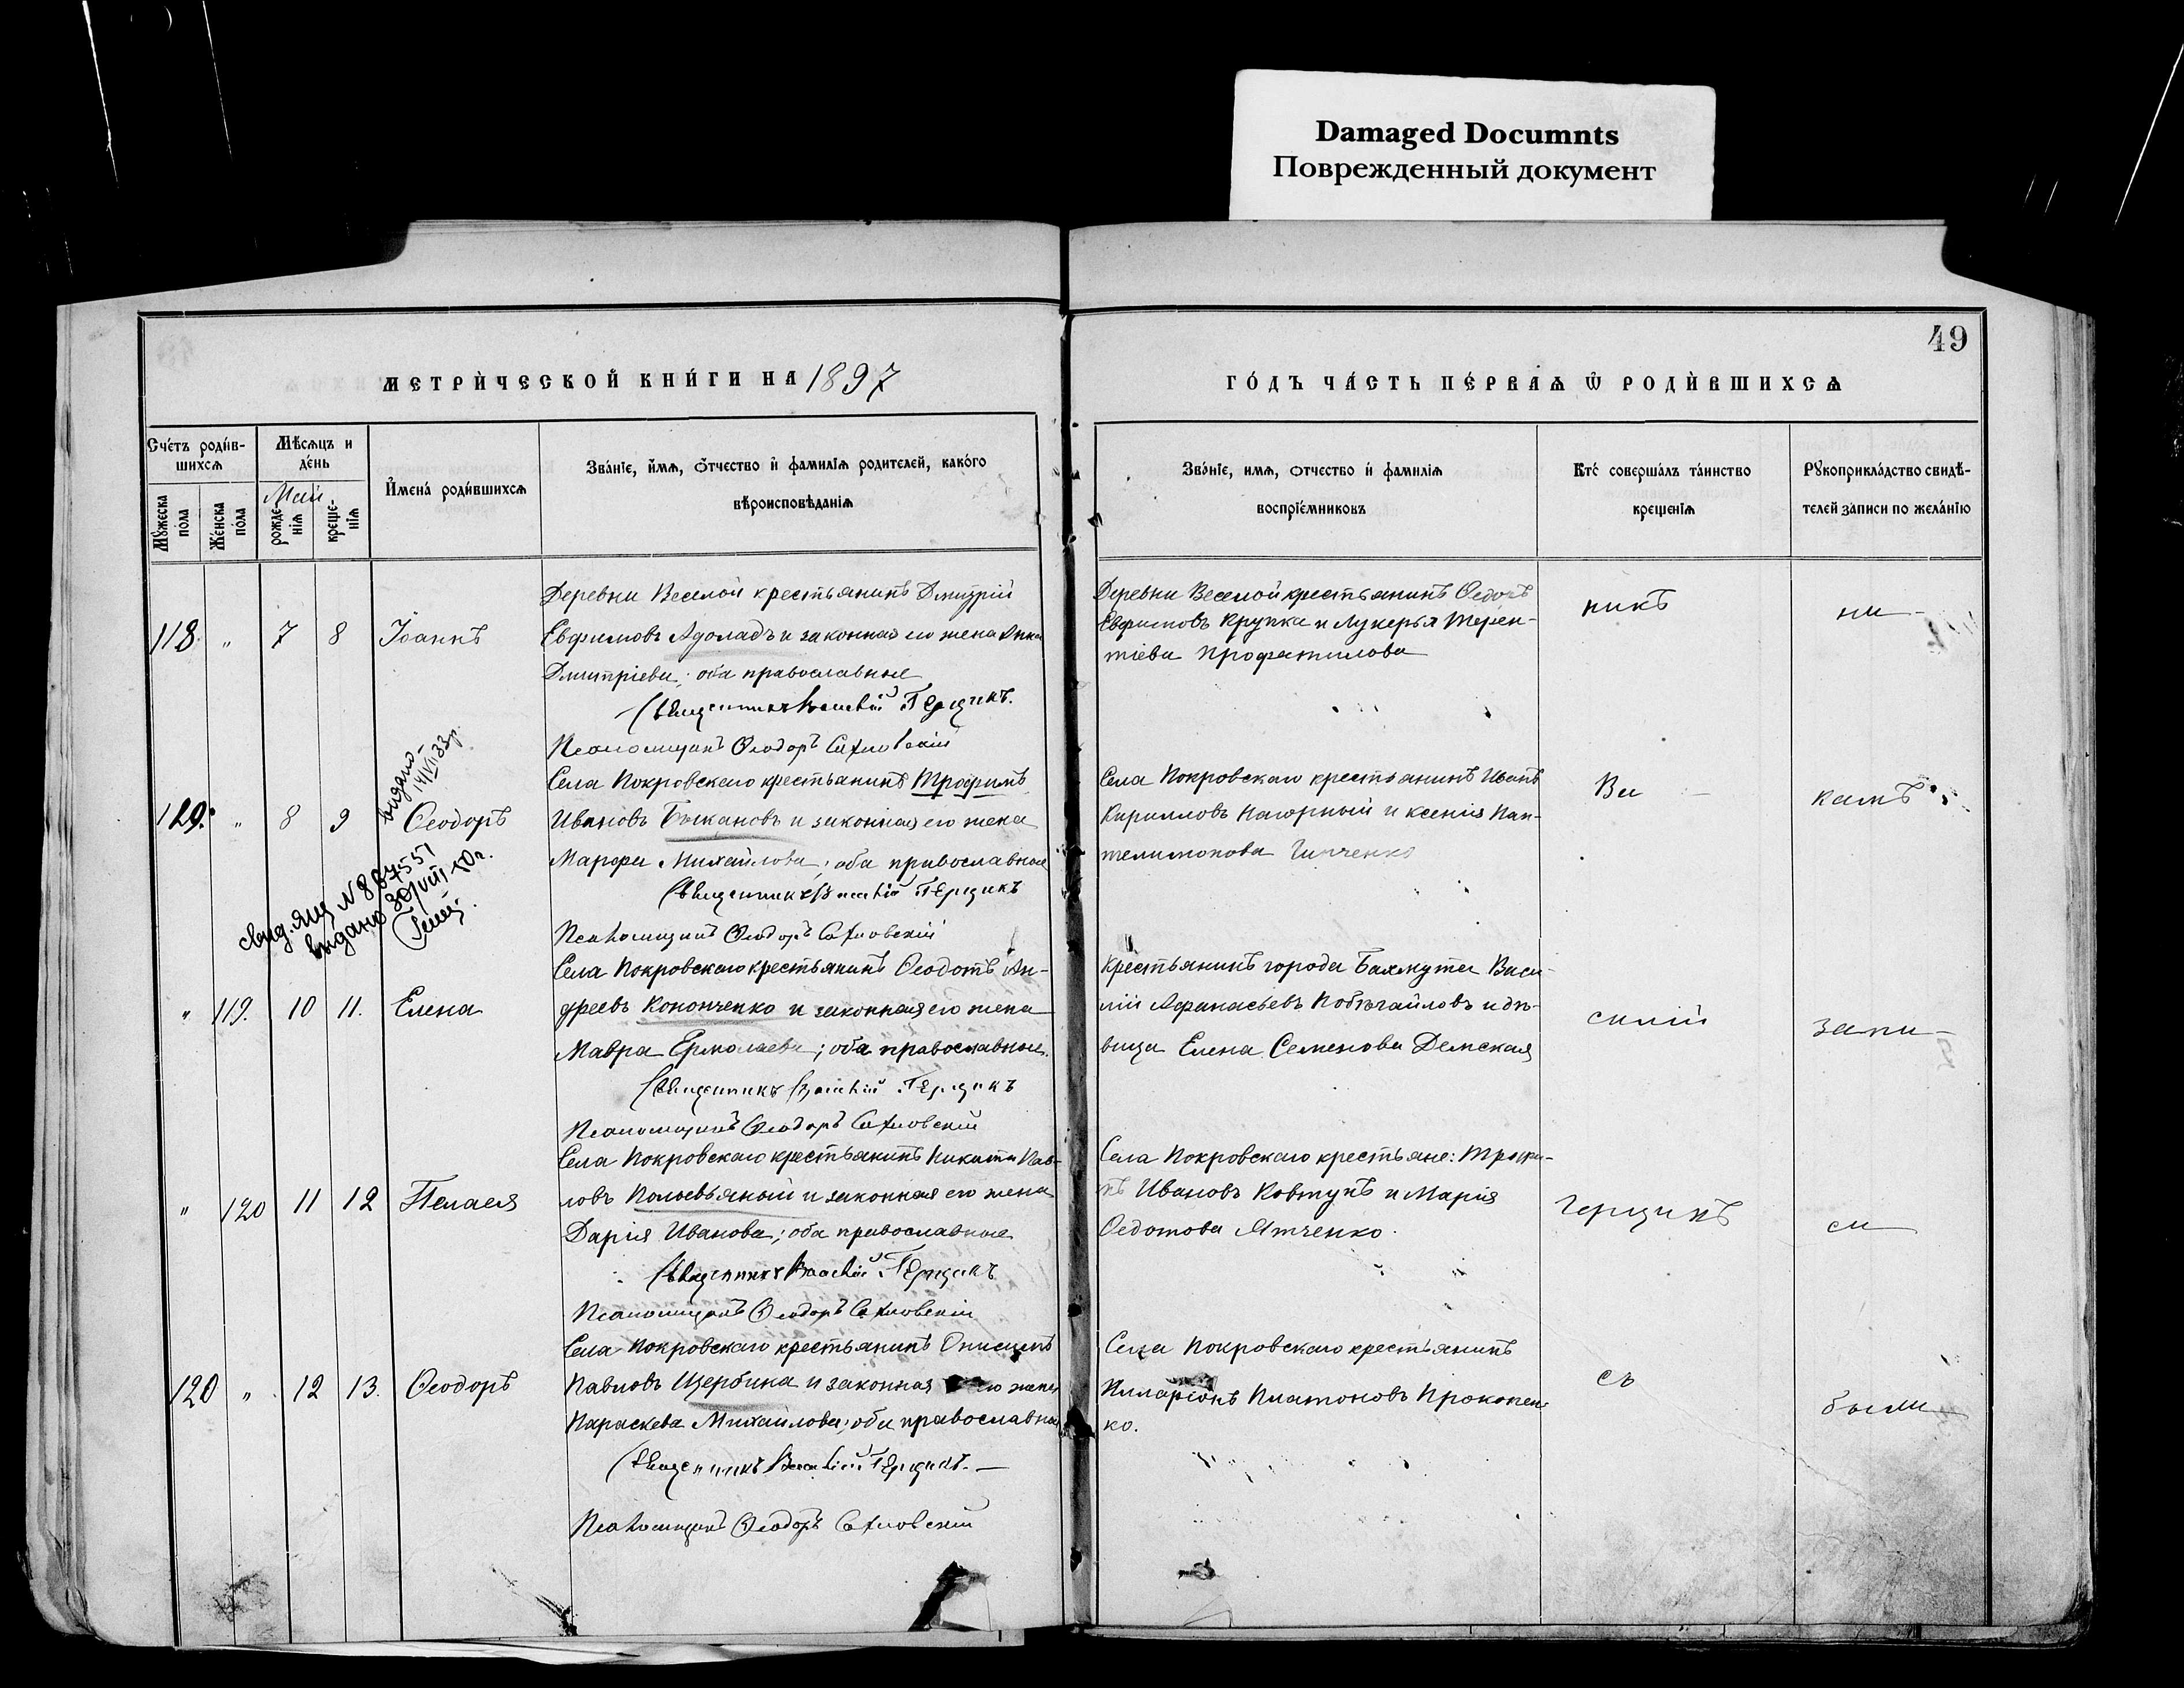 Damaged Documnts
Поврежденный документ
49
МЕТРИ́ЧЕСКОЙ КНИ́ГИ НА 1897
ГО́ДЪ ЧА́СТЬ ПЕ́РВАѦ Ѿ РОДИ́ВШИХСѦ
Сче́тъ роди́в-
шихсѧ
Мѣ́сѧцъ и
де́нь
Май
Мꙋ́жеска
по́ла
Же́нска
по́ла
рожде-
нїѧ
креще-
нїѧ
И҆мена̀ роди́вшихсѧ
Зва́нїе, и҆́мѧ, ѻ҆́тчество и҆ фами́лїѧ родителей, како́го
вѣроисповѣ́данїѧ
Зва́нїе, имѧ, отчество и҆ фами́лїѧ
воспрїе́мниковъ
Кто̀ соверша́лъ та́инство
креще́нїѧ
Рꙋкоприкла́дство свидѣ́-
телей за́писи по жела́нїю
118. " 7 8 Іоаннъ
Деревни Веселой крестьянинъ Дмитрій
Евфимовъ Адоладъ и законная его жена Анна
Дмитріева; оба православные
Священникъ Василій Герцикъ.
Псаломщикъ Ѳеодоръ Сахновскій
Деревни Веселой крестьянинъ Ѳедотъ
Евфимовъ Крупка и Лукерья Терен-
тіева Профатилова
никъ
ни-
видано
14/VII 33 р.
129. " 8 9 Ѳеодоръ
Села Покровскаго крестьянинъ Трофимъ
Ивановъ Быкановъ и законная его жена
Марфа Михайлова; оба православные
Священникъ Василій Герцикъ
Псаломщикъ Ѳеодоръ Сахновскій
Села Покровскаго крестьянинъ Иванъ
Кирилловъ Нагорный и Ксенія Пан-
телимонова
Ва-
камъ
свид. ЯЩ N 867551
видано 30/VIII 50 г.
" 119. 10 11. Елена
Села Покровскаго крестьянинъ Ѳеодотъ Ан-
дреевъ Кононченко и законная его жена
Мавра Ермолаева; оба православные.
Священникъ Василій Герцикъ
Псаломщикъ Ѳеодоръ Сахновскій
Крестьянинъ города Бахмута Васи-
лій Афанасьевъ Побѣгайловъ и дѣ-
вица Елена Семенова Демская
силій
запи-
" 120 11 12 Пелагея
Села Покровскаго крестьянинъ Никита Пав-
ловъ и законная его жена
Дарія Иванова; оба православные
Священникъ Василій Герцикъ
Псаломщикъ Ѳеодоръ Сахновскій
Села Покровскаго крестьяне: Трофи-
мъ Ивановъ Ковтунъ и Марія
Ѳедотова Ятченко.
Герцикъ
си
120 " 12 13. Ѳеодоръ
Села Покровскаго крестьянинъ Онисимъ
Павловъ Щербина и законная его жена
Параскева Михайлова; оба православные
Священникъ Василій Герцикъ.
Псаломщикъ Ѳеодоръ Сахновскій
Села Покровскаго крестьянинъ
Илларіонъ Платоновъ Прокопен-
ко.
съ
были